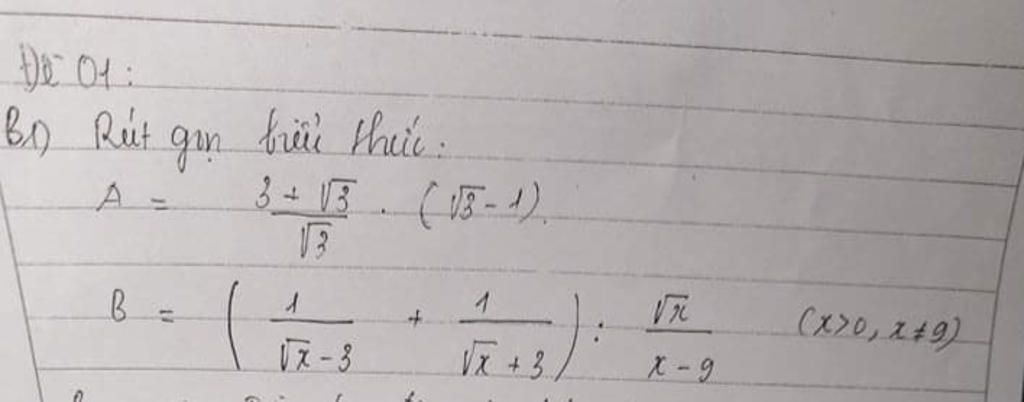 Đề 01:
B1) Rút gọn biểu thức:
A = \frac{3 + \sqrt{3}}{\sqrt{3}} . (\sqrt{3} - 1).
B = \left( \frac{1}{\sqrt{x} - 3} + \frac{1}{\sqrt{x} + 3} \right) : \frac{\sqrt{x}}{x - 9} (x>0, x≠9)